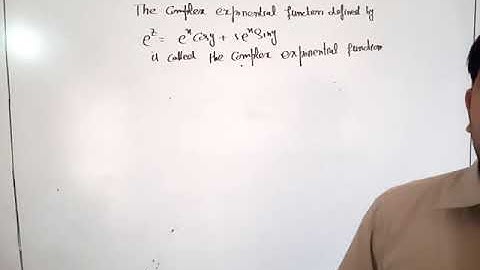 The Complex exponential function defined by
e^z = e^x Cosy + i e^x Siny
is called the Complex exponential function